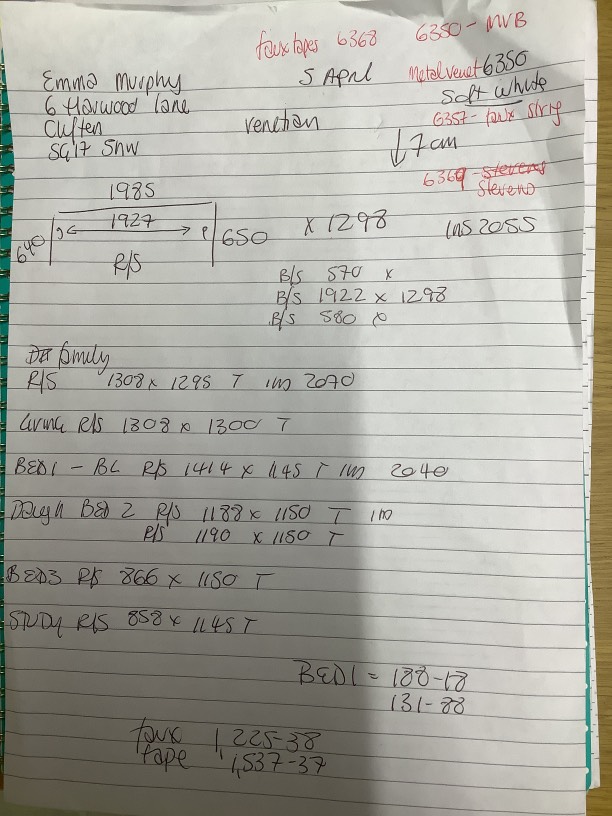 faux tapes 6368 6350 - MVB
Emma Murphy 5 April Metal venet 6350
6 Harwood Lane Soft White
Cliften venetian 6357 - faux string
SG17 5NW ↓ 7 am
6369 - Stevens
Stevens
1985
640 1927 650 x 1298 ins 2055
R/S
B/S 570 x
B/S 1922 x 1298
B/S 580 x
family
R/S 1308 x 1295 T ins 2070
Living R/S 1308 x 1300 T
BED1 - BL R/S 1414 x 1145 T ins 2040
Daugh BED 2 R/S 1188 x 1150 T ins
R/S 1190 x 1150 T
BED3 R/S 866 x 1150 T
STUDY R/S 858 x 1145 T
BED1 = 188-18
131-88
faux 1,225-38
tape 1,537-37